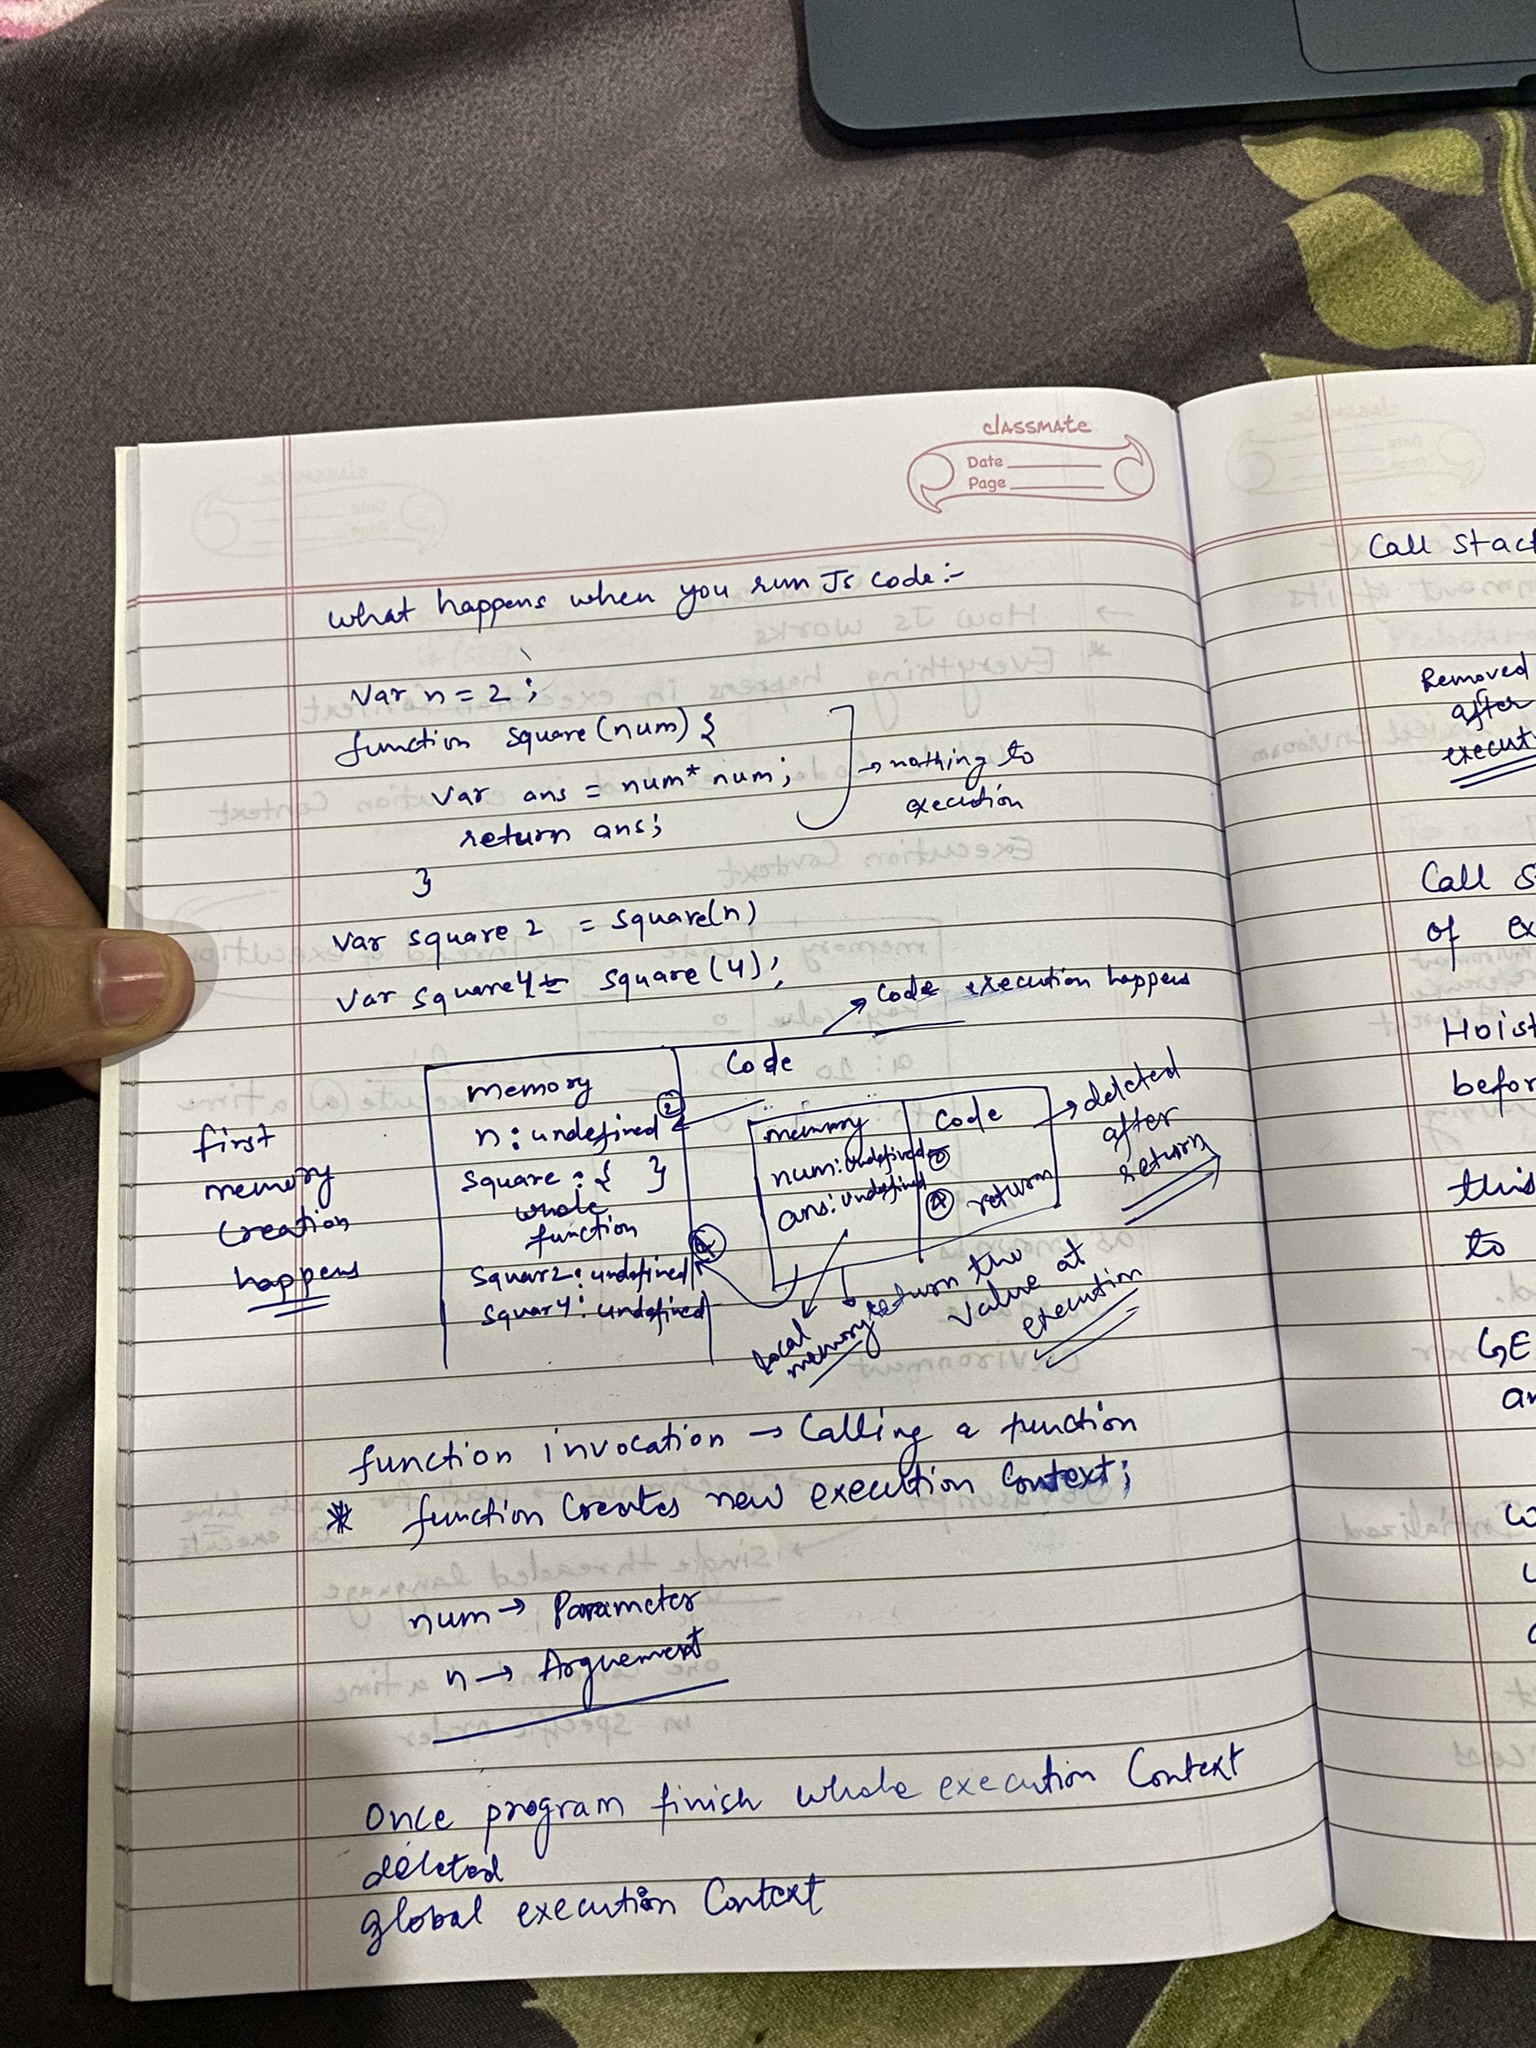 classmate
Date
Page
what happens when you run Js code:-
var n = 2 ;
function square (num) {
var ans = num* num;
return ans;
}
→ nothing to
execution
var square 2 = square(n)
var square4 = square (4);
→ code execution happens
first
memory
creation
happens
memory
n : undefined
②
square : { }
whole
function
squar2: undefined
④
squar4: undefined
Code
memory
num: undefined
ans: undefined
Code
②
④ return
→ deleted
after
return
local
memory
return the
value at
execution
function invocation → Calling a function
* function Creates new execution Context;
num → Parameter
n → Arguement
Once program finish whole execution Context
deleted
global execution Context
Call Stac
Removed
after
execut
Call S
of ex
Hoist
befor
this
to
↳ E
an